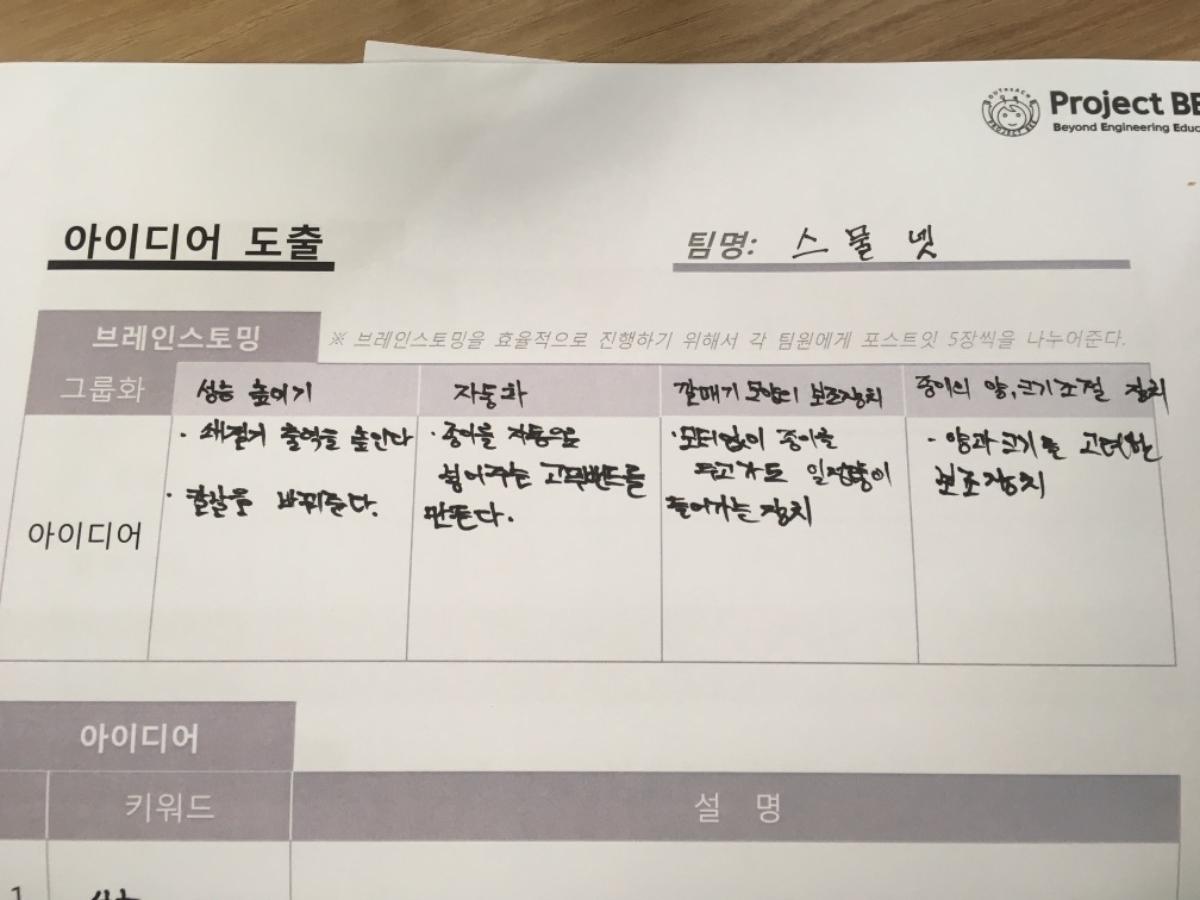 OUTREACH
PROJECT BEE
Project BE
Beyond Engineering Educ
아이디어 도출
팀명: 스물넷
브레인스토밍
※ 브레인스토밍을 효율적으로 진행하기 위해서 각 팀원에게 포스트잇 5장씩을 나누어준다.
그룹화
성능 높이기
자동화
깔때기 모양의 보조장치
종이의 양,크기조절 장치
아이디어
· 세절기 출력을 높인다
· 칼날을 바꿔준다.
· 종이를 자동으로
넣어주는 고무밴드를
만든다.
· 모터없이 종이를
두고가도 일정량이
들어가는 장치
- 양과 크기를 고려한
보조장치
아이디어
키워드
설 명
1